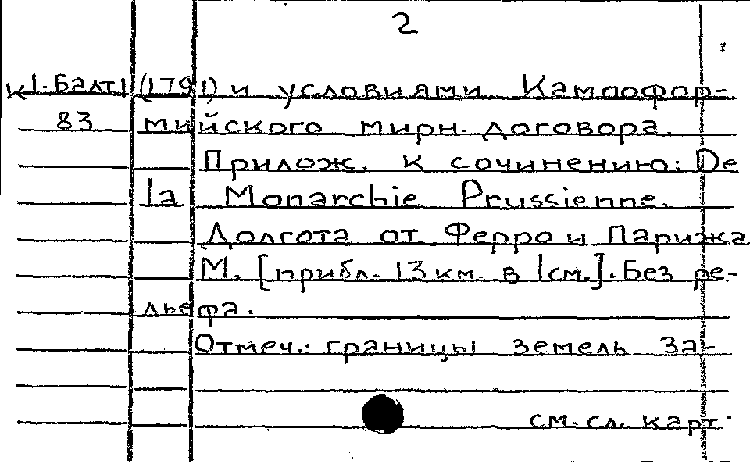 2
К 1-Балт1 (1791) и условиями Кампофор-
83 мийского мирн. договора.
Прилож. к сочинению: De
la Monarchie Prussienne.
Долгота от Ферро и Парижа
М. [прибл. 13 км. в 1см.]. Без ре-
льефа.
Отмеч.: границы земель за-
см. сл. карт.